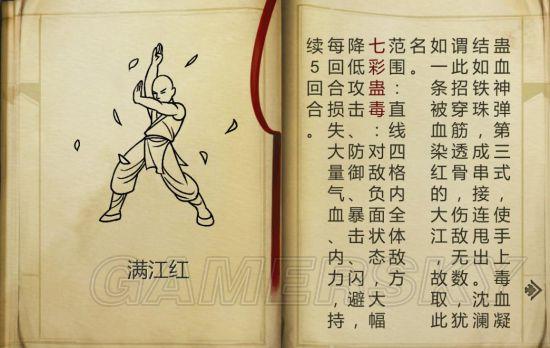 蛊血神弹第三式,使手上毒血凝
结如铁珠,成串接连甩出。沈澜
谓此招穿筋透骨,伤敌无数,犹
如一条被染红的大江,故取此
名。
范围:直线四格内全体敌方
七彩蛊毒:对负面状态,大幅
降低攻击、防御、暴击、闪避,
每回合损失大量气血、内力,持
续5回合。
满江红
GAMERSKY